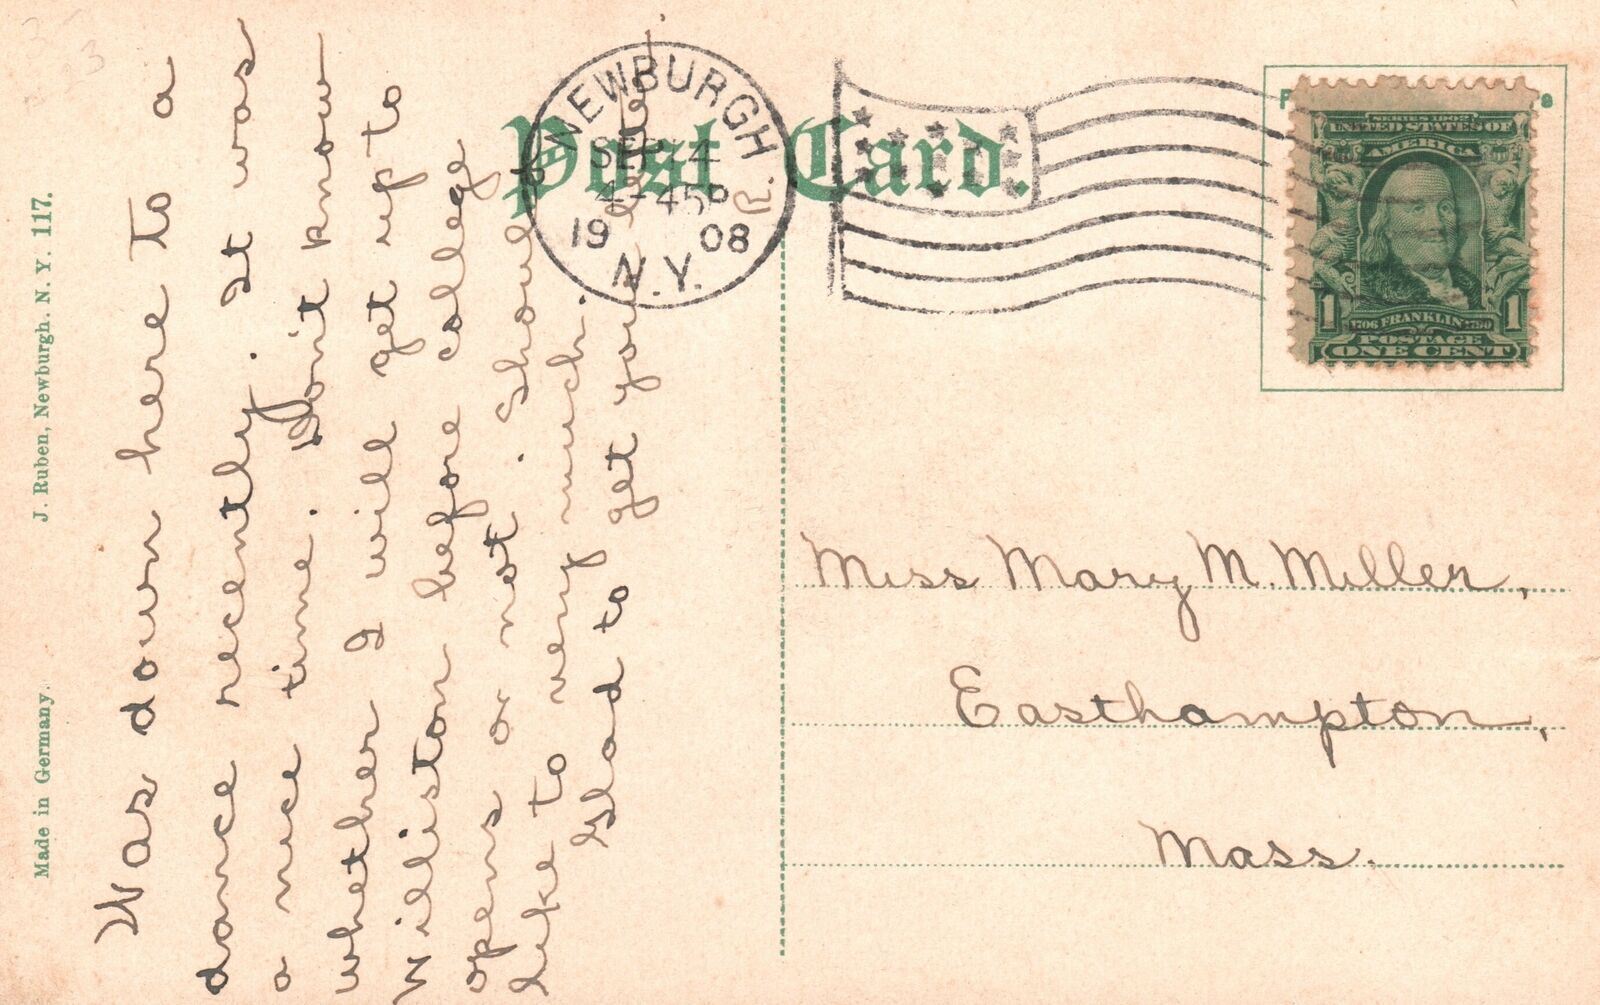 Made in Germany.
J. Ruben, Newburgh. N. Y. 117.
Post Card.
NEWBURGH
SEP 4
4-45P
1908
N.Y.
R.
SERIES 1902
UNITED STATES OF
AMERICA
1 1
1706 FRANKLIN 1790
POSTAGE
ONE CENT
Was down here to a
dance recently. It was
a nice time. Don't know
whether I will get up to
Williston before college
opens or not. Should
like to very much.
Glad to get your letter
Miss Mary M. Miller,
Easthampton,
Mass.